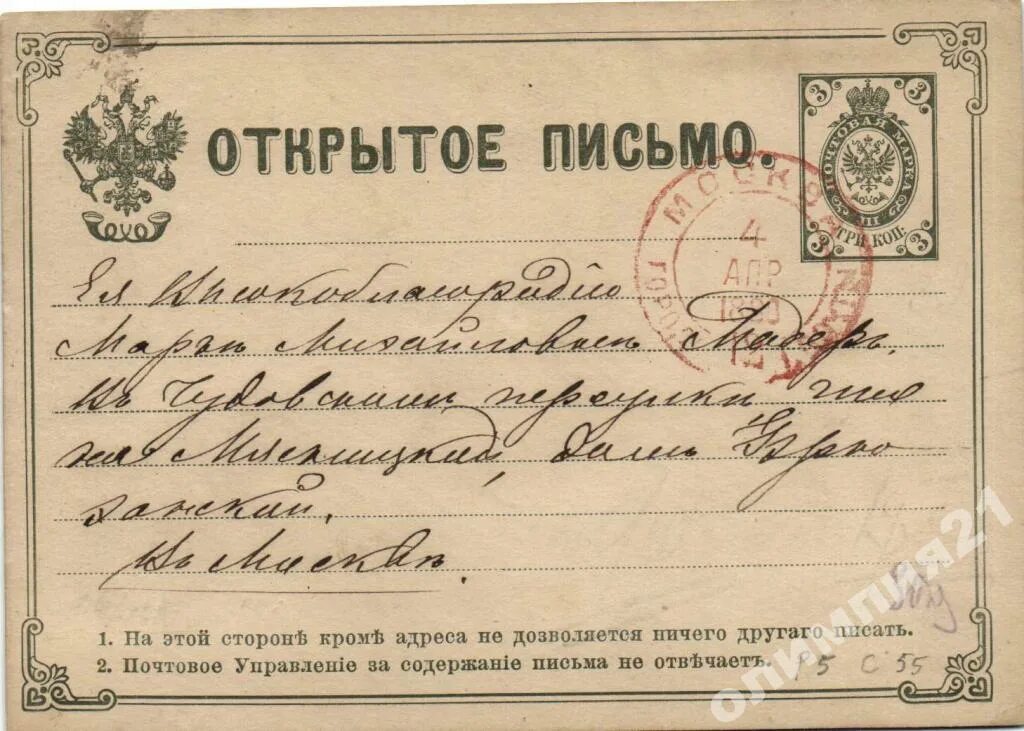 ОТКРЫТОЕ ПИСЬМО.
3 3
ПОЧТОВАЯ МАРКА
ТРИ КОП.
3 3
МОСКВА
4
АПР
ГОРОД.
Ея Высокоблагородію
Марьѣ Михайловнѣ
Въ Чудовскомъ переулкѣ
на Мясницкой, домъ
Въ Москвѣ.
1. На этой сторонѣ кромѣ адреса не дозволяется ничего другаго писать.
2. Почтовое Управленіе за содержаніе письма не отвѣчаетъ.
Р5 С 55
олимпия21